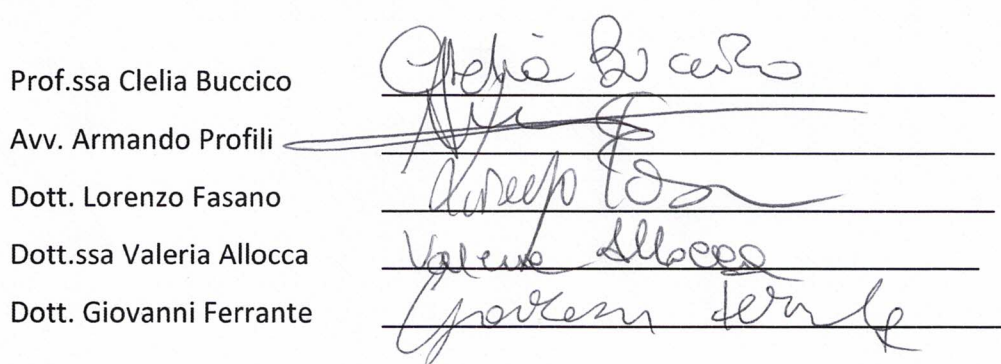 Prof.ssa Clelia Buccico Clelia Buccico
Avv. Armando Profili
Dott. Lorenzo Fasano Lorenzo Fasano
Dott.ssa Valeria Allocca Valeria Allocca
Dott. Giovanni Ferrante Giovanni Ferrante